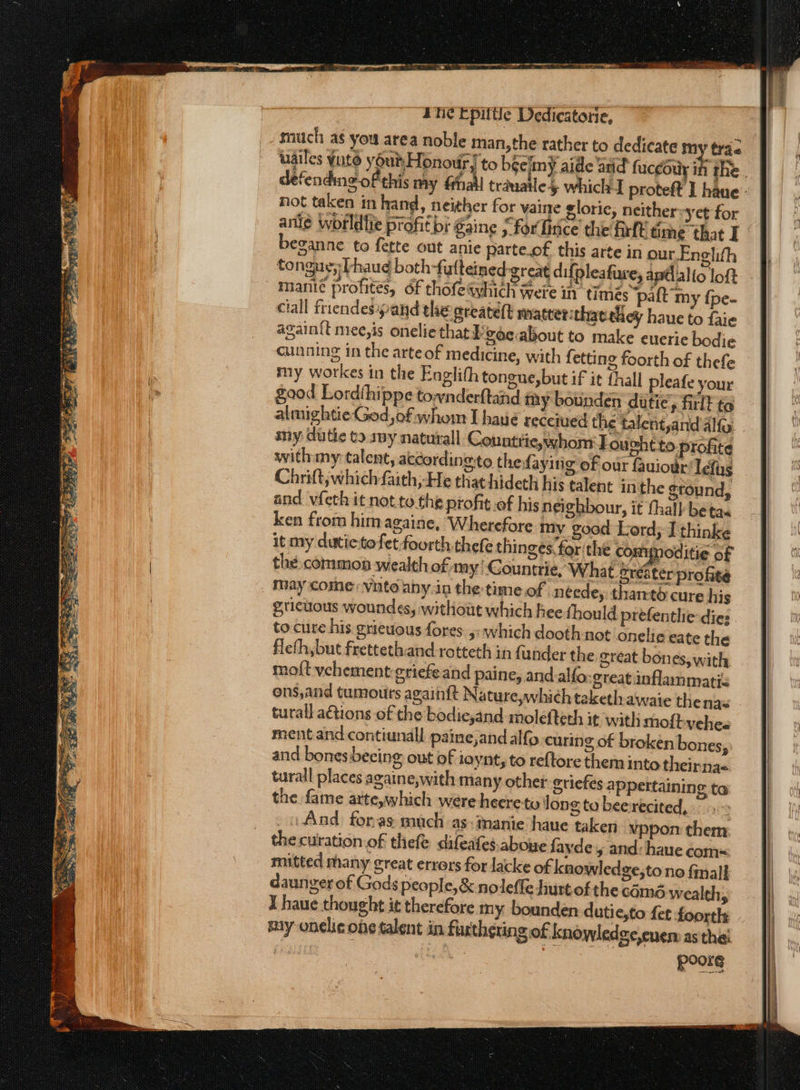 The Epistle Dedicatorie,
much as you are a noble man, the rather to dedicate my tra-
uailes vnto your Honour, to bee my aide and succour in the
defending of this my small trauailes which I protest I haue
not taken in hand, neither for vaine glorie, neither yet for
anie worldlie profit or gaine, for since the first time that I
beganne to sette out anie parte of this arte in our English
tongue, I haue both susteined great displeasure, and also lost
manie profites, of those which were in times past my spe-
ciall friendes, and the greatest matter that they haue to saie
against mee, is onelie that I goe about to make euerie bodie
cunning in the arte of medicine, with setting foorth of these
my workes in the English tongue, but if it shall please your
good Lordshippe to vnderstand my bounden dutie, first to
almightie God, of whom I haue receiued the talent, and also
my dutie to my naturall Countrie, whom I ought to profite
with my talent, according to the saying of our sauiour Iesus
Christ, which saith, He that hideth his talent in the ground,
and vseth it not to the profit of his neighbour, it shall be ta-
ken from him againe, Wherefore my good Lord, I thinke
it my dutie to set foorth these thinges, for the commoditie of
the common wealth of my Countrie, What greater profite
may come vnto any in the time of neede, than to cure his
grieuous woundes, without which hee should presentlie die:
to cure his grieuous sores, which dooth not onelie eate the
flesh, but fretteth and rotteth in sunder the great bones, with
most vehement griefe and paine, and also great inflammati-
ons, and tumours against Nature, which taketh awaie the na-
turall actions of the bodie, and molesteth it with most vehe-
ment and continuall paine, and also curing of broken bones,
and bones beeing out of ioynt, to restore them into their na-
turall places againe, with many other griefes appertaining to
the same arte, which were heere to long to bee recited.
And for as much as manie haue taken vppon them
the curation of these diseases aboue sayde, and haue com-
mitted many great errors for lacke of knowledge, to no small
daunger of Gods people, & no lesse hurt of the cōmō wealth,
I haue thought it therefore my bounden dutie, to set foorth
my onelie one talent in furthering of knowledge, euen as the
poore